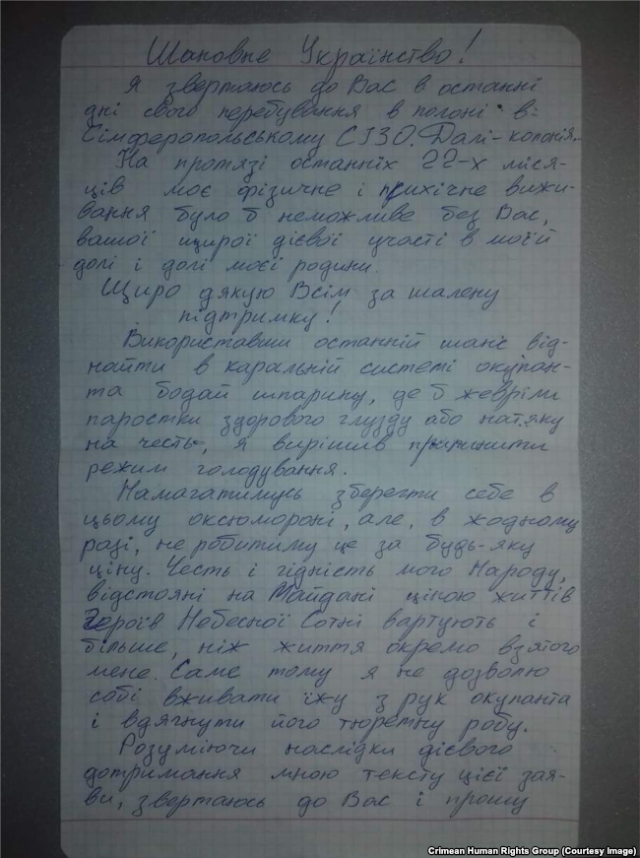 Шановне Українство!
Я звертаюсь до Вас в останні
дні свого перебування в полоні в
Сімферопольському СІЗО. Далі - колонія.
На протязі останніх 22-х міся-
ців моє фізичне і психічне вижи-
вання було б неможливе без Вас,
вашої щирої дієвої участі в моїй
долі і долі моєї родини.
Щиро дякую Всім за шалену
підтримку!
Використавши останній шанс від-
найти в каральній системі окупан-
та бодай шпарину, де б жевріли
паростки здорового глузду або натяку
на честь, я вирішив припинити
режим голодування.
Намагатимусь зберегти себе в
цьому оксюморані, але, в жодному
разі, не робитиму це за будь-яку
ціну. Честь і гідність мого Народу,
відстояні на Майдані ціною життів
Героїв Небесної Сотні вартують і
більше, ніж життя окремо взятого
мене. Саме тому я не дозволю
собі вживати їжу з рук окупанта
і вдягнути його тюремну робу.
Розуміючи наслідки дієвого
дотримання мною тексту цієї зая-
ви, звертаюсь до Вас і прошу
Crimean Human Rights Group (Courtesy Image)